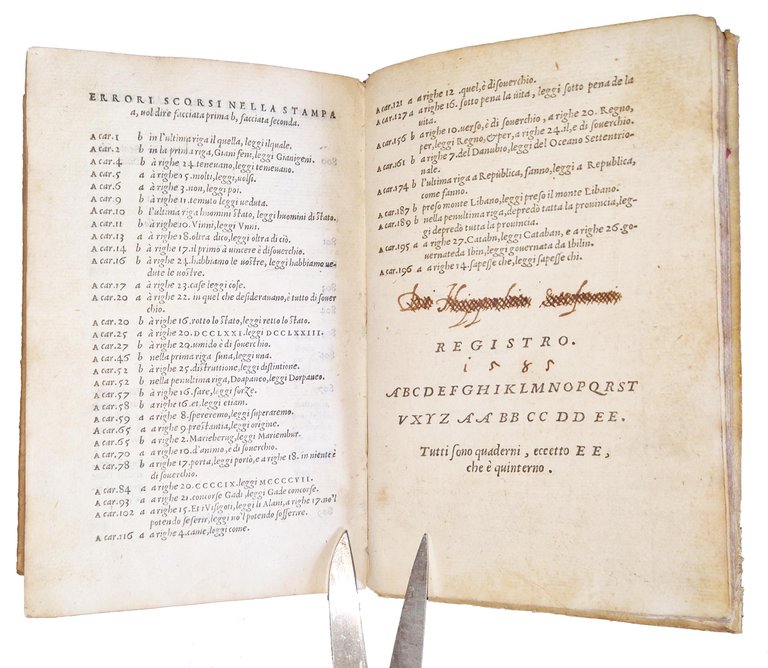 ERRORI SCORSI NELLA STAMPA
a, uol dire facciata prima b, facciata seconda.
A car.1 b in l'ultima riga il quella, leggi ilquale.
A car.2 b in la prima riga, Giani feni, leggi Gianigeni.
A car.4 b à righe 24 teneuano, leggi teneuano.
A car.5 a à righe 5. molti, leggi uolsi.
A car.6 a à righe 3. non, leggi poi.
A car.9 b à righe 11. tenuto leggi ueduta.
A car.10 b l'ultima riga huomini stato, leggi huomini di stato.
A car.11 b à righe 10. Vinni, leggi Vnni.
A car.13 a à righe 18. oltra dico, leggi oltra di ciò.
A car.14 b à righe 17. il primo à uincere è disouerchio.
A car.16 b à righe 24. habbiamo le uostre, leggi habbiamo ue
dute le uostre.
A car.17 a à righe 23. case leggi cose.
A car.20 a à righe 22. in quel che desiderauano, è tutto di souer
chio.
A car.20 b à righe 16. rotto lo stato, leggi retto lo stato.
A car.25 a à righe 20. DCCLXXI. leggi DCCLXXIII.
A car.27 b à righe 20. umido è di souerchio.
A car.46 b nella prima riga suna, leggi una.
A car.52 b à righe 25. distruttione, leggi distintione.
A car.52 b nella penultima riga, Doapanco, leggi Dorpauco.
A car.57 b à righe 16. fare, leggi forze.
A car.58 b à righe 16. et. leggi etiam.
A car.59 a à righe 8. spereremo, leggi superaremo.
A car.65 a à righe 9. prestantia, leggi origine.
A car.65 b à righe 2. Marieberug, leggi Mariembur.
A car.70 a a righe 10. d'animo, e di souerchio.
A car.78 b à righe 17. porta, leggi portò, e a righe 18. in niente è
di souerchio.
A car.84 a a righe 20. CCCCIX. leggi MCCCCVII.
A car.93 a a righe 21. concorse Gadi, leggi Gade concorse.
A car.102 a a righe 15. Et i Visigoti, leggi li Alani, a righe 17. no'l
potendo seferir, leggi no'l potendo sofferire.
A car.116 a a righe 4. came, leggi come.
A car.121 a a righe 12. quel, è disouerchio.
A car.127 a a righe 16. sotto pena la uita, leggi sotto pena de la
uita.
A car.156 b a righe 10. uerso, è di souerchio, a righe 20. Regno,
per, leggi Regno, & per, a righe 24. il, e di souerchio.
A car.161 b a righe 7. del Danubio, leggi del Oceano Settentrio-
nale.
A car.174 b l'ultima riga a Republica, fanno, leggi a Republica,
come fanno.
A car.187 b preso monte Libano, leggi preso il monte Libano.
A car.189 b nella penultima riga, depredò tatta la prouincia, leg-
gi depredò tutta la prouincia.
A car.195 a a righe 27. Catabn, leggi Cataban, e a righe 26. go-
uernateda Ibin, leggi gouernata da Ibilin.
A car.196 a a righe 14. sapesse che, leggi sapesse chi.
REGISTRO.
1585
ABCDEFGHIKLMNOPQRST
VXYZ AA BB CC DD EE.
Tutti sono quaderni, eccetto EE,
che è quinterno.